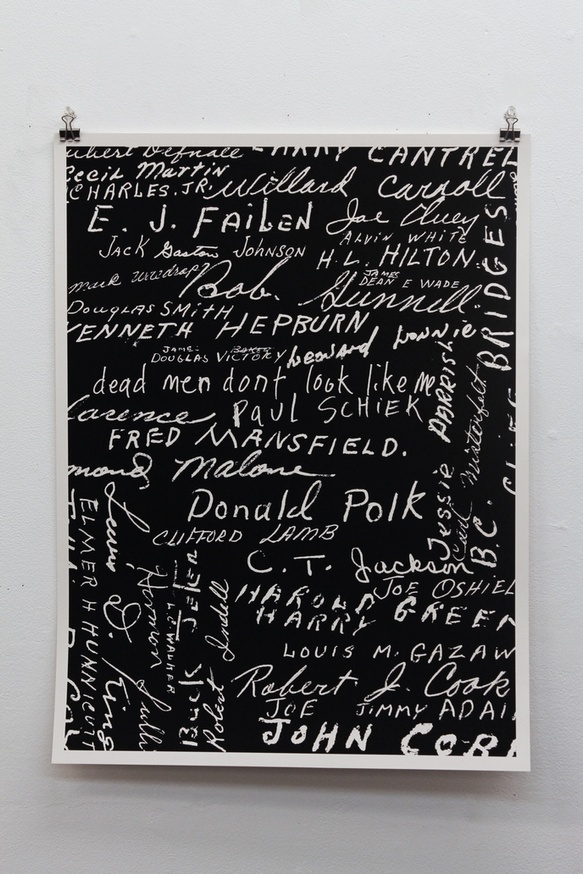 HARRY CANTREL
Cecil Martin
CHARLES. JR. Willard Carroll
E. J. FAILEN Joe
JACK Gaston JOHNSON ALVIN WHITE
H.L. HILTON.
mark JAMES
Bob. Gunnell DEAN E WADE
DOUGLAS SMITH
KENNETH HEPBURN
JAMES BAKER Leonard Lonnie
DOUGLAS VICTORY
dead men don't look like me
Clarence PAUL SCHIEK
FRED MANSFIELD.
mond Malone
Donald Polk
CLIFFORD LAMB
C.T. Jackson
HAROLD JOE OSHIEL
HARRY GREEN
LOUIS M. GAZAW
Robert J. Cook
JOE JIMMY ADAI
JOHN COR
BRIDGES
PARRISH
Jessie
Carl
B.C.
ELMER H HUNNICUTT
Lewis D. King
Herman
L.C. WALKER
Buck JETER
Robert Indell